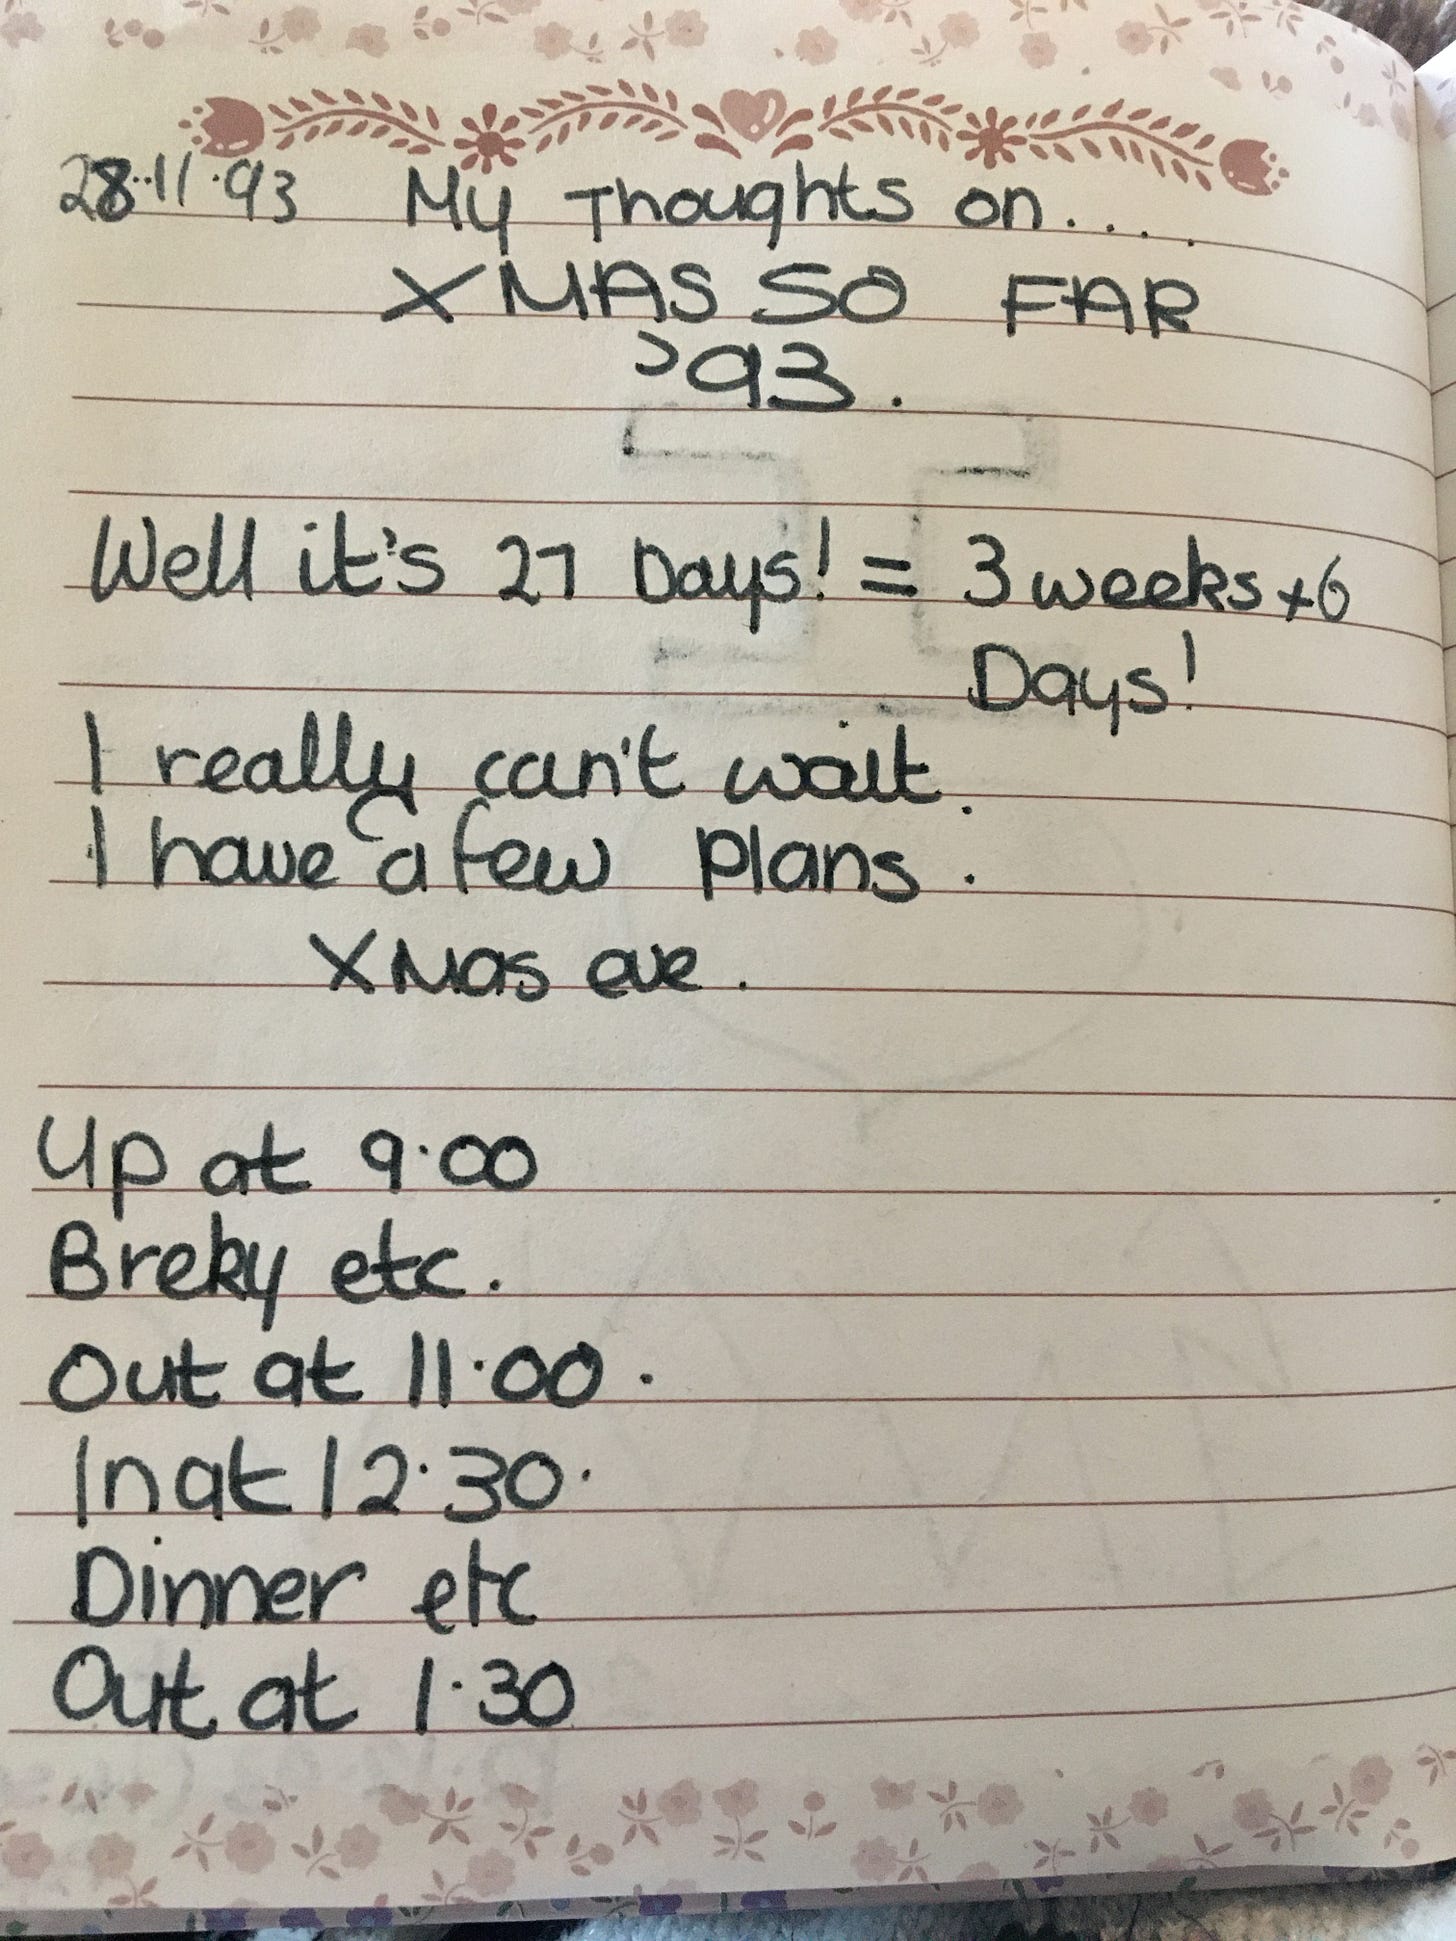 28·11·93 My Thoughts on....
XMAS SO FAR
'93.
Well it's 27 Days! = 3 weeks +6
Days!
I really can't wait.
I have a few plans.
XMas eve.
Up at 9·00
Breky etc.
Out at 11·00.
In at 12·30.
Dinner etc
Out at 1·30